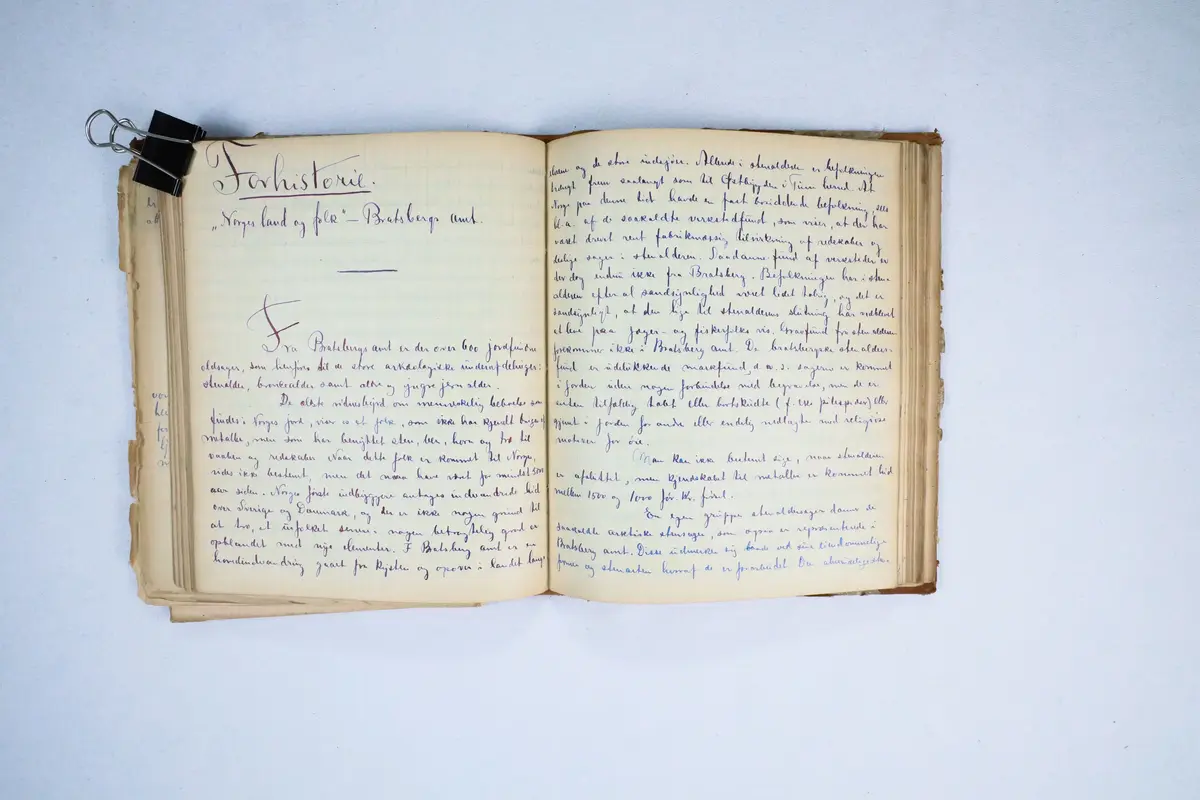 Forhistorie.
„Norges land og folk“ – Bratsbergs amt.
Fra Bratsbergs amt er der over 600 jordfundne
oldsager, som henføres til de store arkæologiske underafdelinger:
stenalder, bronsealder samt ældre og yngre jernalder.
De ældste vidnesbyrd om menneskelig beboelse som
findes i Norges jord, viser os et folk, som ikke har kjendt brugen af
metaller, men som har benyttet sten, ben, horn og træ til
vaaben og redskaber. Naar dette folk er kommet til Norge,
vides ikke bestemt, men det maa have været for mindst
aar siden. Norges første indbyggere antages indvandrede hid
over Sverige og Danmark, og der er ikke nogen grund til
at tro, at urfolket senere i nogen betragtelig grad er
opblandet med nye elementer. I Bratsberg amt er en
hovedindvandring gaaet fra kysten og opover i landet langs
elvene og de store indsjøer. Allerede i stenalderen er befolkningen
trængt frem saalangt som til Østbygden i Tinn herred. At
Norge paa denne tid havde en fast boiddende befolkning, sees
bl. a. af de saakaldte verkstedfund, som viser, at der har
været drevet rent fabrikmæssig tilvirkning af redskaber og
deslige sager i stenalderen. Saadanne fund af verksteder er
der dog endnu ikke fra Bratsberg. Befolkningen har i sten-
alderen efter al sandsynlighed været lidet talrig, og det er
sandsynligt, at den lige til stenalderens slutning har vedblevet
at leve paa jæger- og fiskerfolks vis. Gravfund fra stenalderen
forekommer ikke i Bratsberg amt. De bratsbergske stenalders-
fund er udelukkende markfund, d. v. s. sagerne er kommet
i jorden uden nogen forbindelse med begravelse, men de er
enten tilfældig tabt eller bortskudte (f. eks pilespidser) eller
gjemt i jorden for andre eller endelig nedlagte med religiøse
motiver for øie.
Man kan ikke bestemt sige, naar stenalderen
er afsluttet, men kjendskabet til metaller er kommet hid
mellem 1500 og 1000 før Kr. fødsel.
En egen gruppe stenaldersager danner de
saakaldte arktiske stensager, som ogsaa er repræsenterede i
Bratsberg amt. Disse udmerker sig baade ved sine eiendommelige
former og stenarten hvoraf de er forarbeidet. Den almindeligste